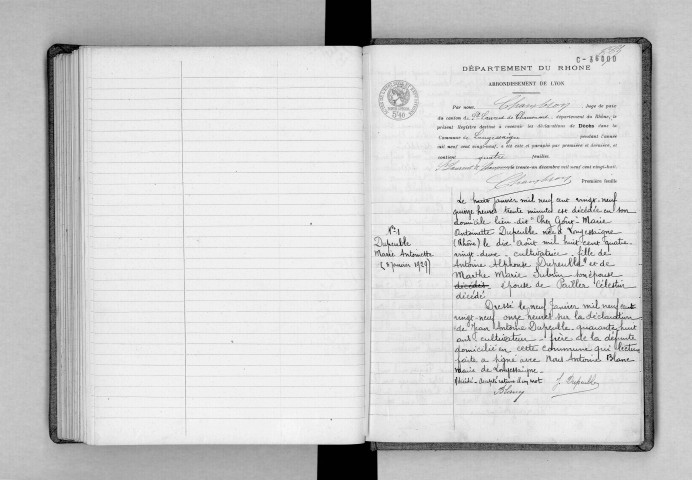 C-36000
DÉPARTEMENT DU RHÔNE
ARRONDISSEMENT DE LYON
Par nous, Juge de paix
du canton de St Laurent de Chamousset, département du Rhône, le
présent Registre destiné à recevoir les déclarations de Décès dans la
Commune de Longessaigne pendant l'année
mil neuf cent vingt-neuf, a été coté et paraphé par première et dernière, et
contient quatre feuilles.
St Laurent de Chamousset trente-un décembre mil neuf cent vingt-huit.
Première feuille
N° 1
Dupeuble
Marie Antoinette
(8 janvier 1929)
Le huit janvier mil neuf cent vingt-neuf
quinze heures trente minutes est décédée en son
domicile lieu dit "Chez Goût" Marie
Antoinette Dupeuble née à Longessaigne
(Rhône) le dix août mil huit cent quatre
vingt deux - cultivatrice - fille de
Antoine Alphonse Dupeuble et de
Marthe Marie son épouse
décédés épouse de Célestin
décédé
Dressé le neuf janvier mil neuf cent
vingt-neuf onze heures sur la déclaration
de Jean Antoine Dupeuble quarante huit
ans cultivateur - frère de la défunte
domicilié en cette commune qui lecture
faite a signé avec Nous Antoine Blanc
maire de Longessaigne -
d'un mot
J. Dupeuble